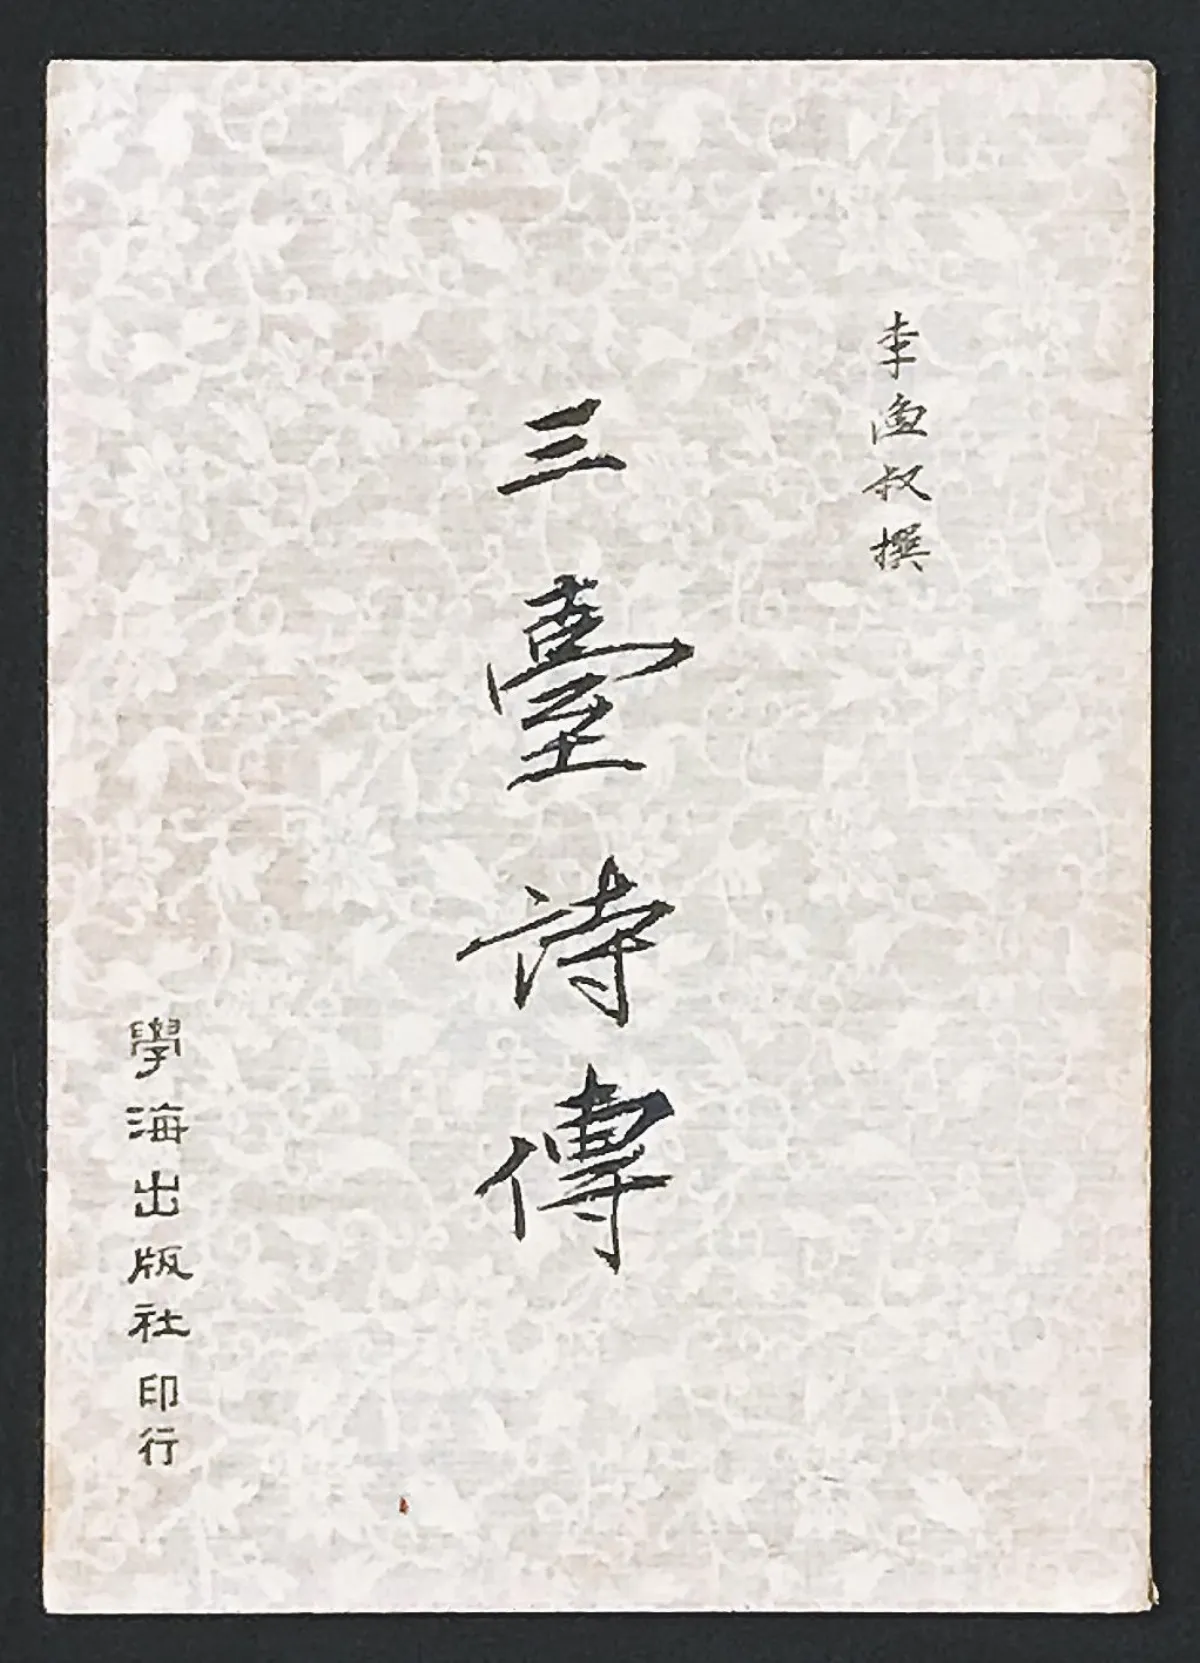 李漁叔撰
三臺詩傳
學海出版社印行